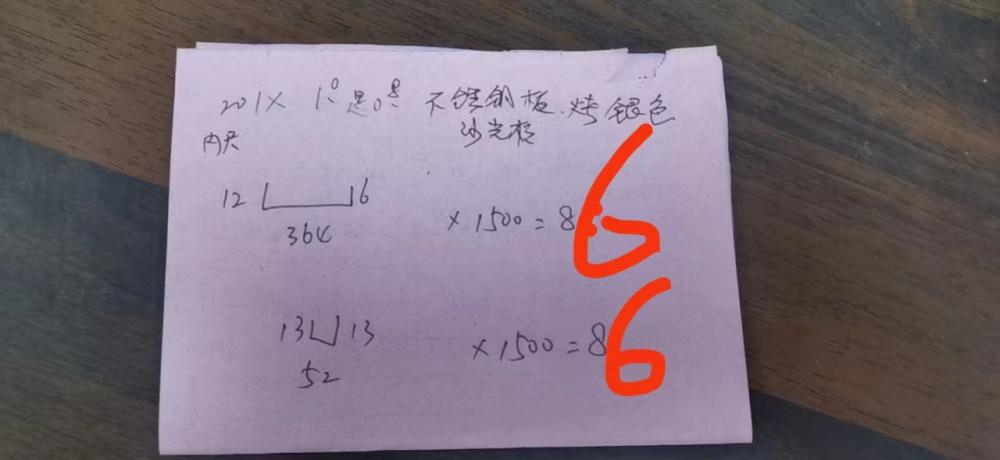 201× 1.0 是0.8 不锈钢板.烤银色
内尺 沙光板
12 16
364
× 1500 = 8 6
13 13
52
× 1500 = 8 6